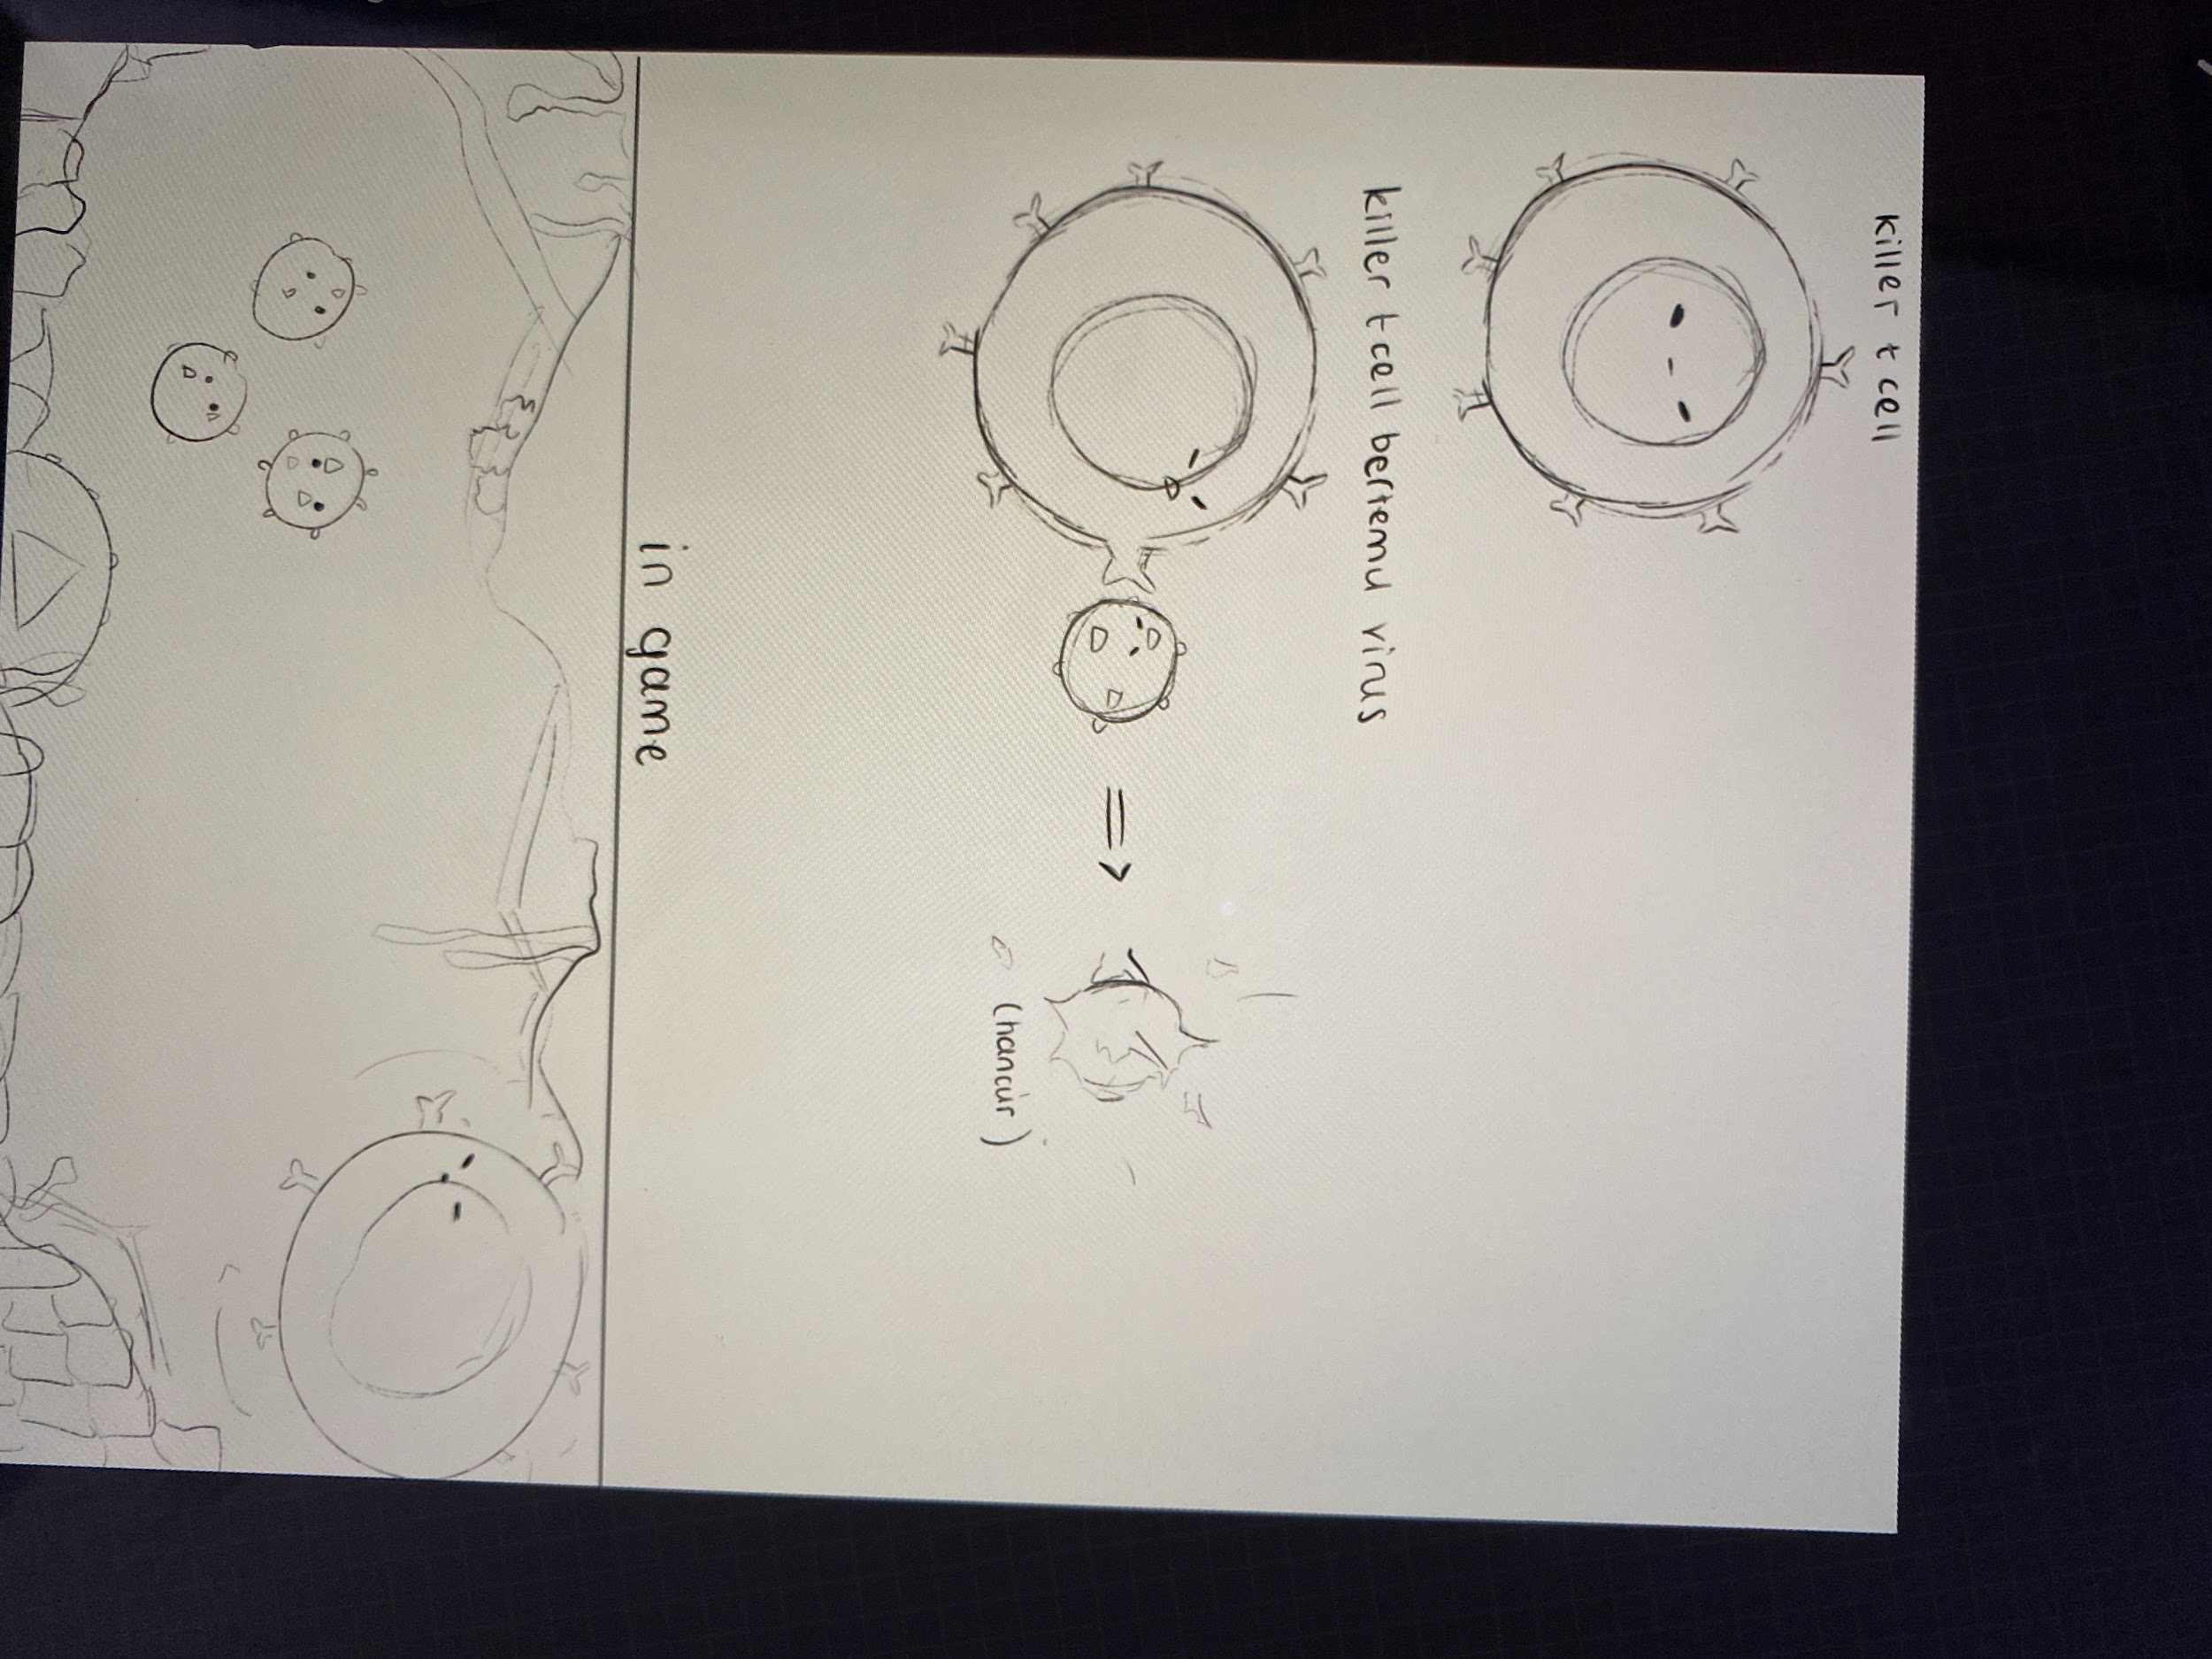 killer t cell
killer t cell bertemu virus
=>
(hancur)
in game